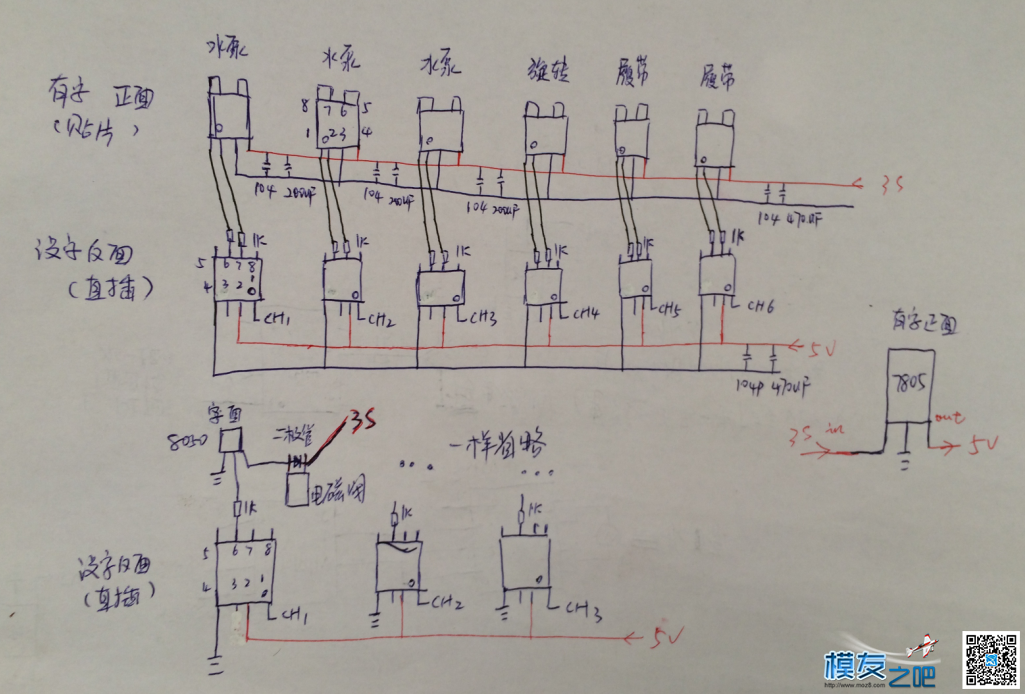 水泵 水泵 水泵 旋转 履带 履带
有字 正面
(贴片)
8 7 6 5
1 2 3 4
3S
104 200uF 104 200uF 104 200uF 104 470uF
没字反面
(直插)
1K 1K 1K 1K 1K 1K
5 6 7 8
4 3 2 1
CH1 CH2 CH3 CH4 CH5 CH6
5V
104P 470uF
有字正面
7805
3S in
out
5V
字面
8050
二极管
3S
电磁阀
一样省略
1K 1K 1K
没字反面
(直插)
5 6 7 8
4 3 2 1
CH1 CH2 CH3
5V
模友之吧
http://www.moz8.com